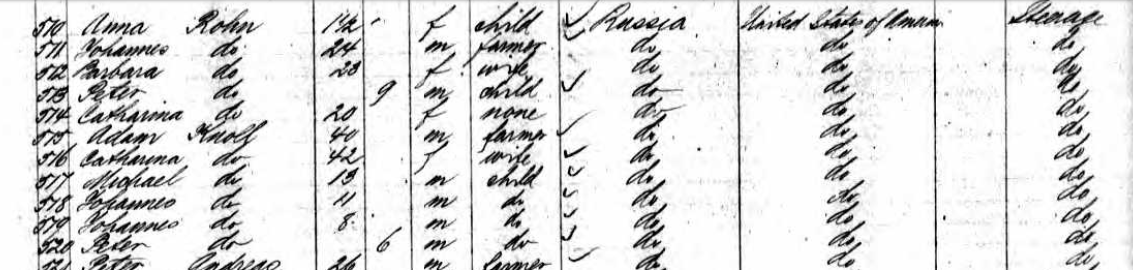 510 Anna Rohn 1 1/2 f child Russia United States of Americ Steerage
511 Johannes do 24 m farmer do do do
512 Barbara do 23 f wife do do do
513 Peter do 9 m child do do do
514 Catharina do 20 f none do do do
515 Adam Knoll 40 m farmer do do do
516 Catharina do 42 f wife do do do
517 Michael do 13 m child do do do
518 Johannes do 11 m do do do do
519 Johannes do 8 m do do do do
520 Peter do 6 m do do do do
521 Peter Andreas 26 m farmer do do do